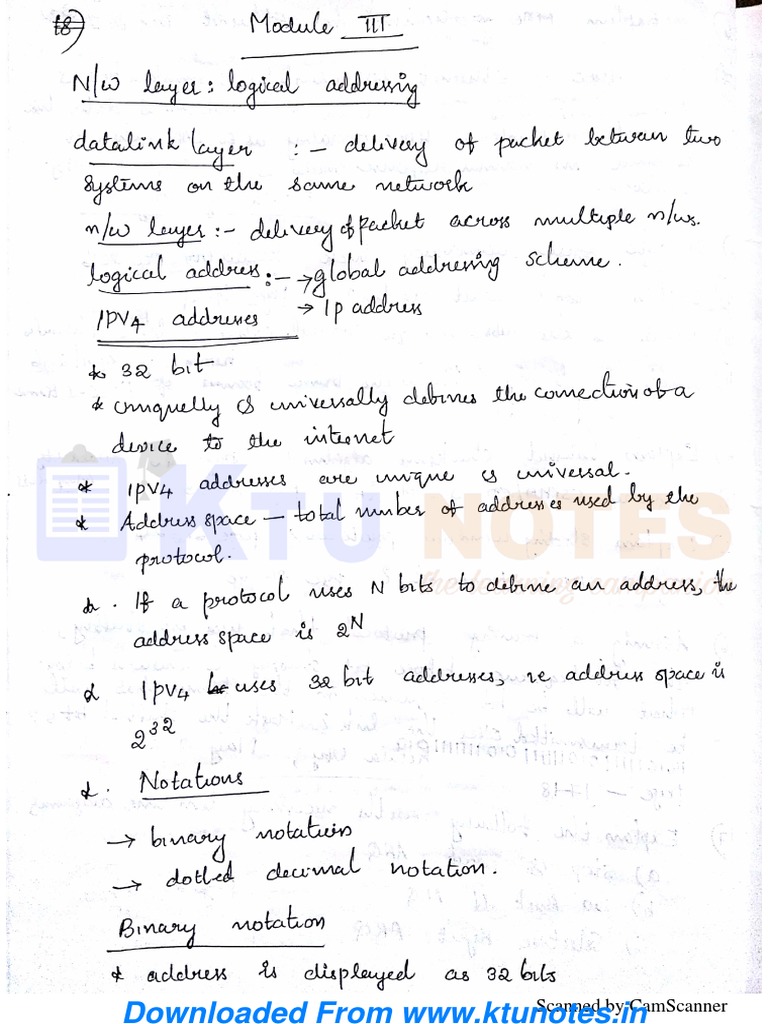 18)
Module III
N/w layer: logical addressing
datalink layer :- delivery of packet between two
systems on the same network
n/w layer :- delivery of packet across multiple n/ws.
logical address :- → global addressing scheme.
→ Ip address
IPV4 addresses
* 32 bit
* uniquelly & universally defines the connection of a
device to the internet
* IPV4 addresses are unique & universal.
* Address space - total number of addresses used by the
protocol.
KTU NOTES
The learning companion
* . If a protocol uses N bits to define an address, the
address space is 2^N
* IPV4 uses 32 bit addresses, ie address space is
2^32
* . Notations
→ binary notations
→ dotted decimal notation.
Binary notation
* address is displayed as 32 bits
Scanned by CamScanner
Downloaded From www.ktunotes.in